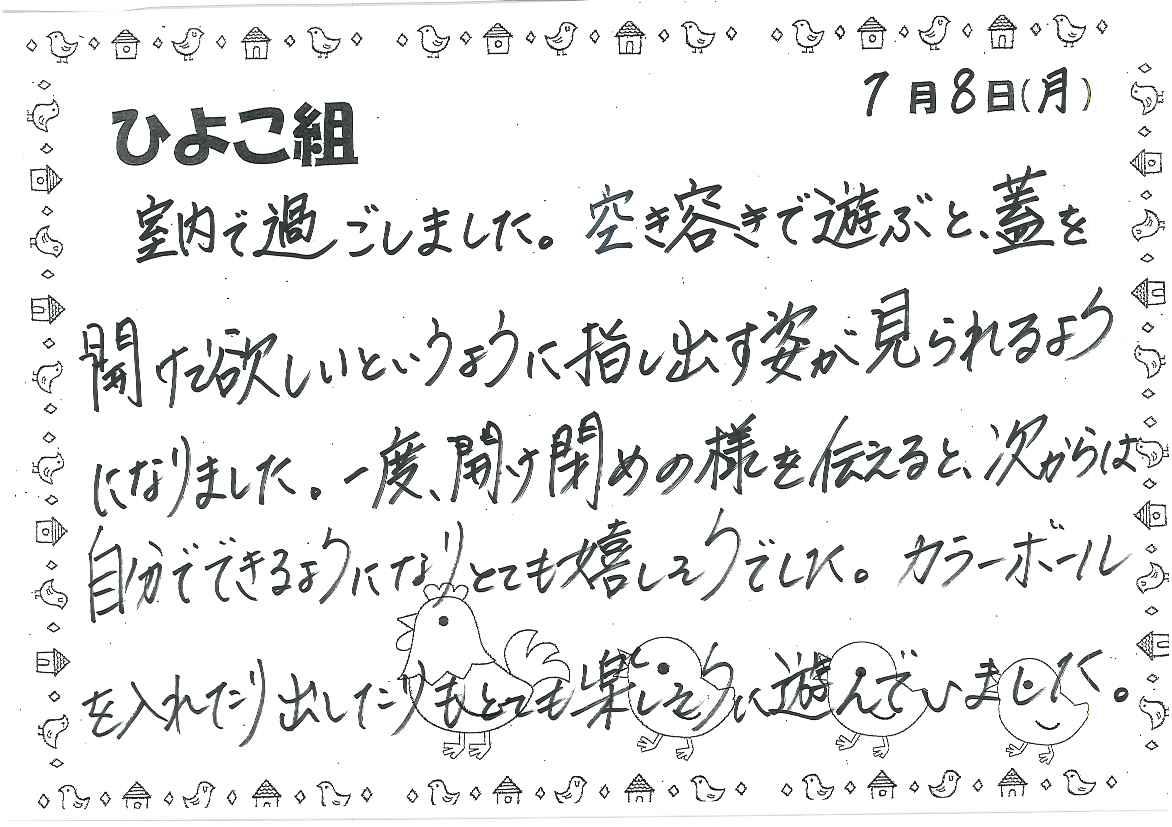 7月8日(月)
ひよこ組
室内で過ごしました。空き容きで遊ぶと、蓋を
開けて欲しいというように指し出す姿が見られるよう
になりました。一度、開け閉めの様を伝えると、次からは
自分でできるようになりとても嬉しそうでした。カラーボール
を入れたり出したりもとても楽しそうに遊んでいました。